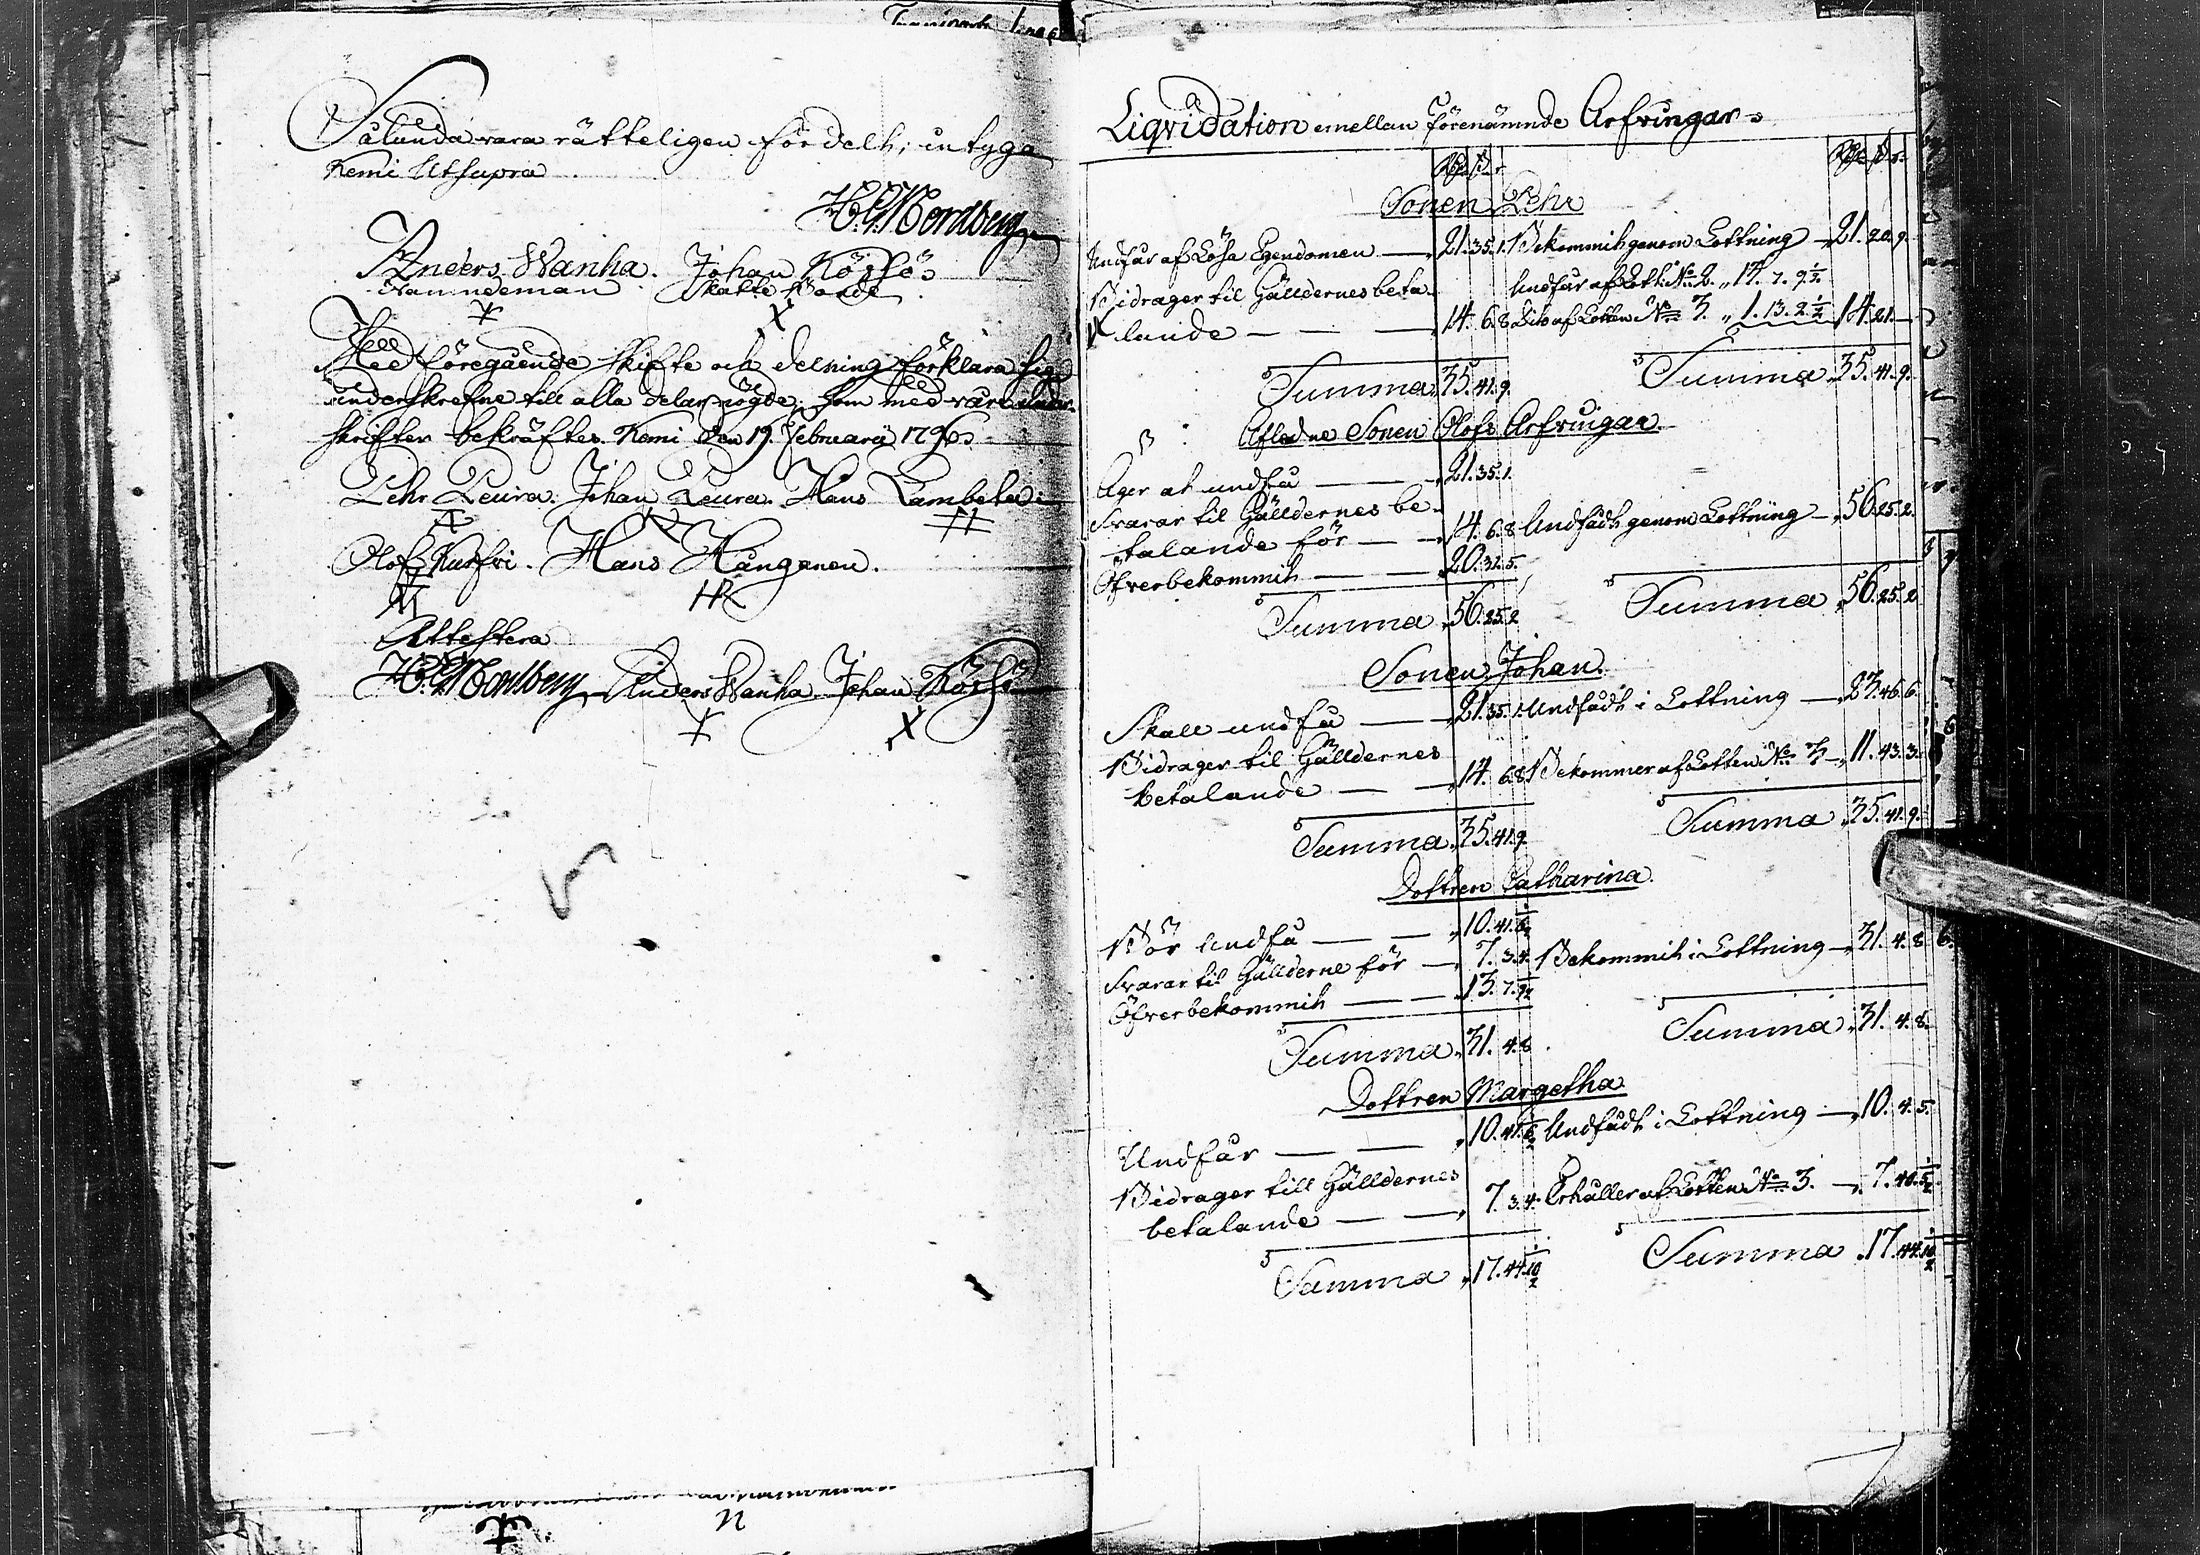 Sålunda vara rätteligen fördelt, intyga
Kemi Utsupra
H. G. Nordberg
Anders Wanha. Johan Kössö
Nämndeman Skatte Bonde
Med föregående skifte och delning förklara sig
underskrefne till alla delar nögde, som med våre under-
skrifter bekräftes. Kemi den 19. Februarii 1796.
Pehr Leura. Johan Leura. Hans Lambela
Olof Kursri. Hans Kånganen.
Attestera
H. G. Nordberg Anders Wanha Johan Kössö
Liqvidation emellan förenämnde Arfvingar
Sonen Pehr
Undfår af Lösa Egendomen — 21. 35. 1. Bekommit genom Lottning — 21. 20. 9.
Bidrager til Gälldernes beta- Undfår af Lott. No 2. 14. 7. 9½
lande — — — 14. 6. 8 Dito af Lotten No 3. 1. 13. 2½ 14. 21. —
Summa 35. 41. 9. Summa 35. 41. 9.
Aflednе Sonen Olofs Arfvingar.
Äger at undfå — — 21. 35. 1.
Svarar til Gälldernes be-
talande för — — 14. 6. 8 Undfådt genom Lottning — 56. 25. 2.
Öfverbekommit — — 20. 31. 5.
Summa 56. 25. 2 Summa 56. 25. 2
Sonen Johan.
Skall undfå — — 21. 35. 1. Undfådt i Lottning — 23. 46. 6.
Bidrager til Gälldernes
betalande — — 14. 6. 8 Bekommer af Lotten No 3 — 11. 43. 3.
Summa 35. 41. 9. Summa 35. 41. 9.
Dottren Catharina.
Bör Undfå — — 10. 41. 6½
Svarar til Gällderne för — 7. 3. 4. Bekommit i Lottning — 31. 4. 8.
Öfverbekommit — — 13. 7. 9½
Summa 31. 4. 8. Summa 31. 4. 8.
Dottren Margetha
Undfår — — 10. 41. 6½ Undfådt i Lottning — 10. 4. 5.
Bidrager till Gälldernes
betalande — — 7. 3. 4. Erhåller af Lotten No 3. — 7. 40. 5½
Summa 17. 44. 10½ Summa 17. 44. 10½